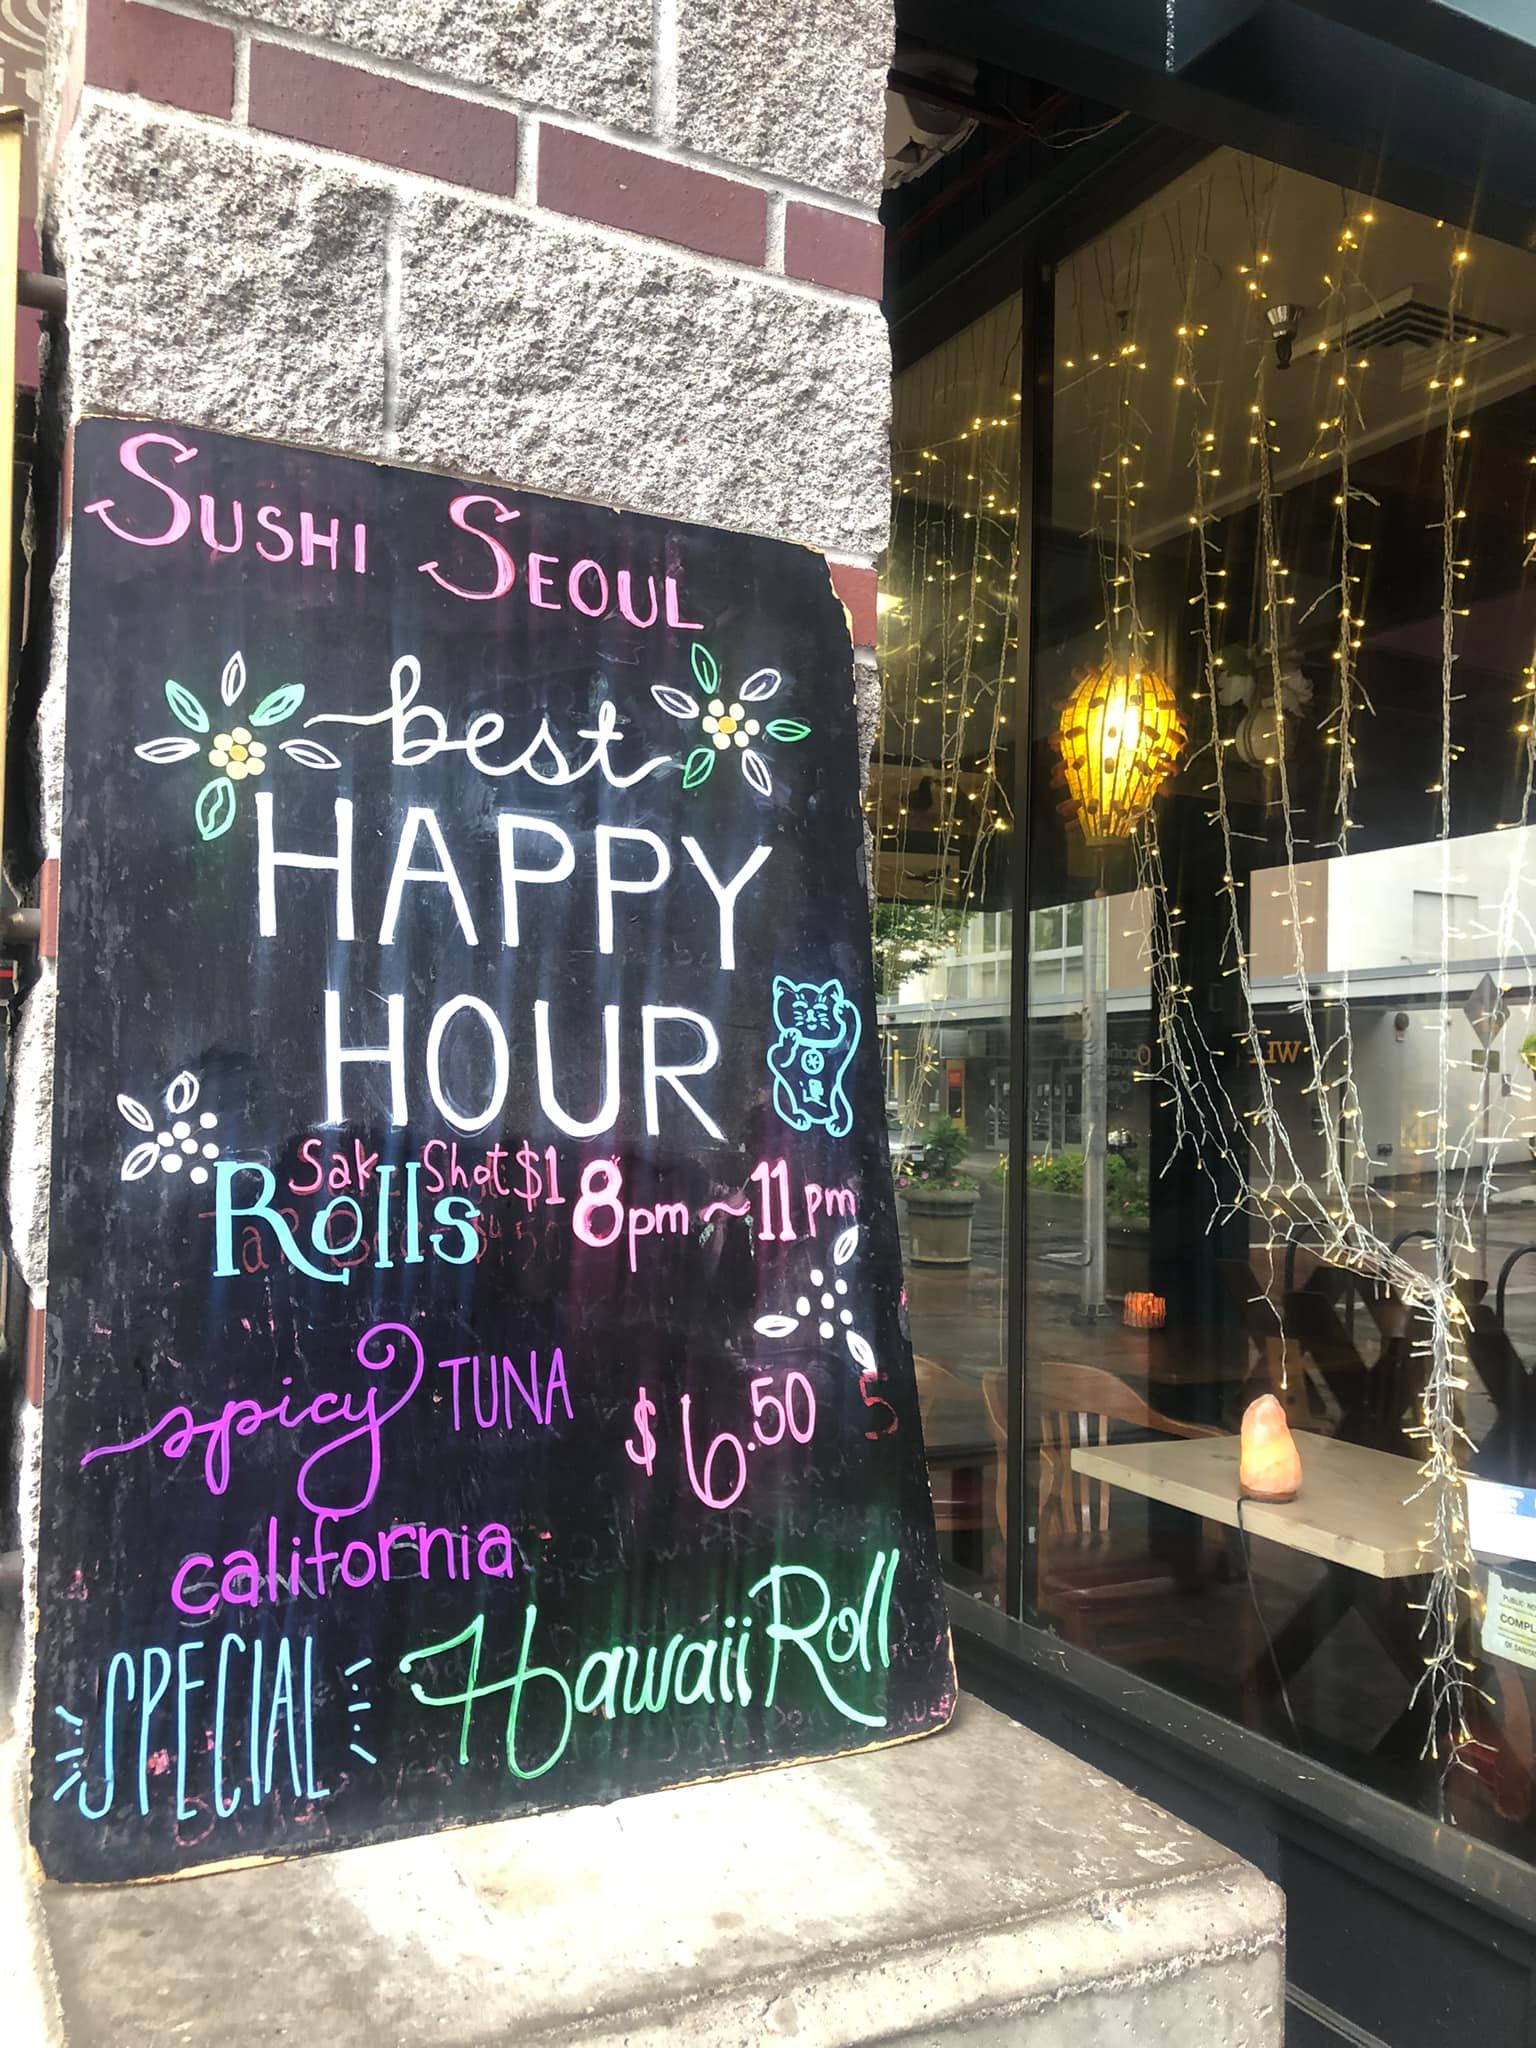 SUSHI SEOUL
best
HAPPY
HOUR
運
Sake Shot $1 8pm ~ 11pm
Rolls
spicy TUNA $6.50
california
SPECIAL Hawaii Roll
PUBLIC
COMPL